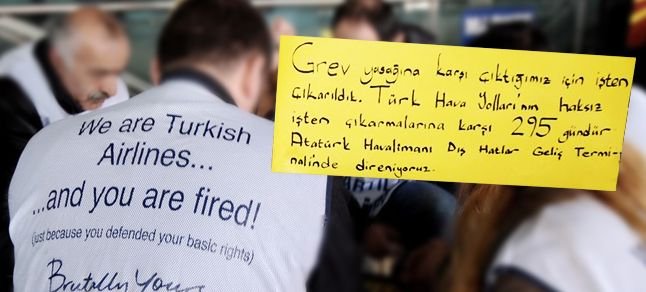 We are Turkish
Airlines...
...and you are fired!
(just because you defended your basic rights)
Brutally Yours
Grev yasağına karşı çıktığımız için işten
çıkarıldık. Türk Hava Yolları'nın haksız
işten çıkarmalarına karşı 295 gündür
Atatürk Havalimanı Dış Hatlar Geliş Termi-
nalinde direniyoruz.